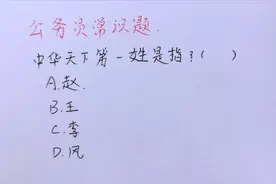 公务员常识题.
中华天下第一姓是指?( )
A.赵.
B.王
C.李
D.风